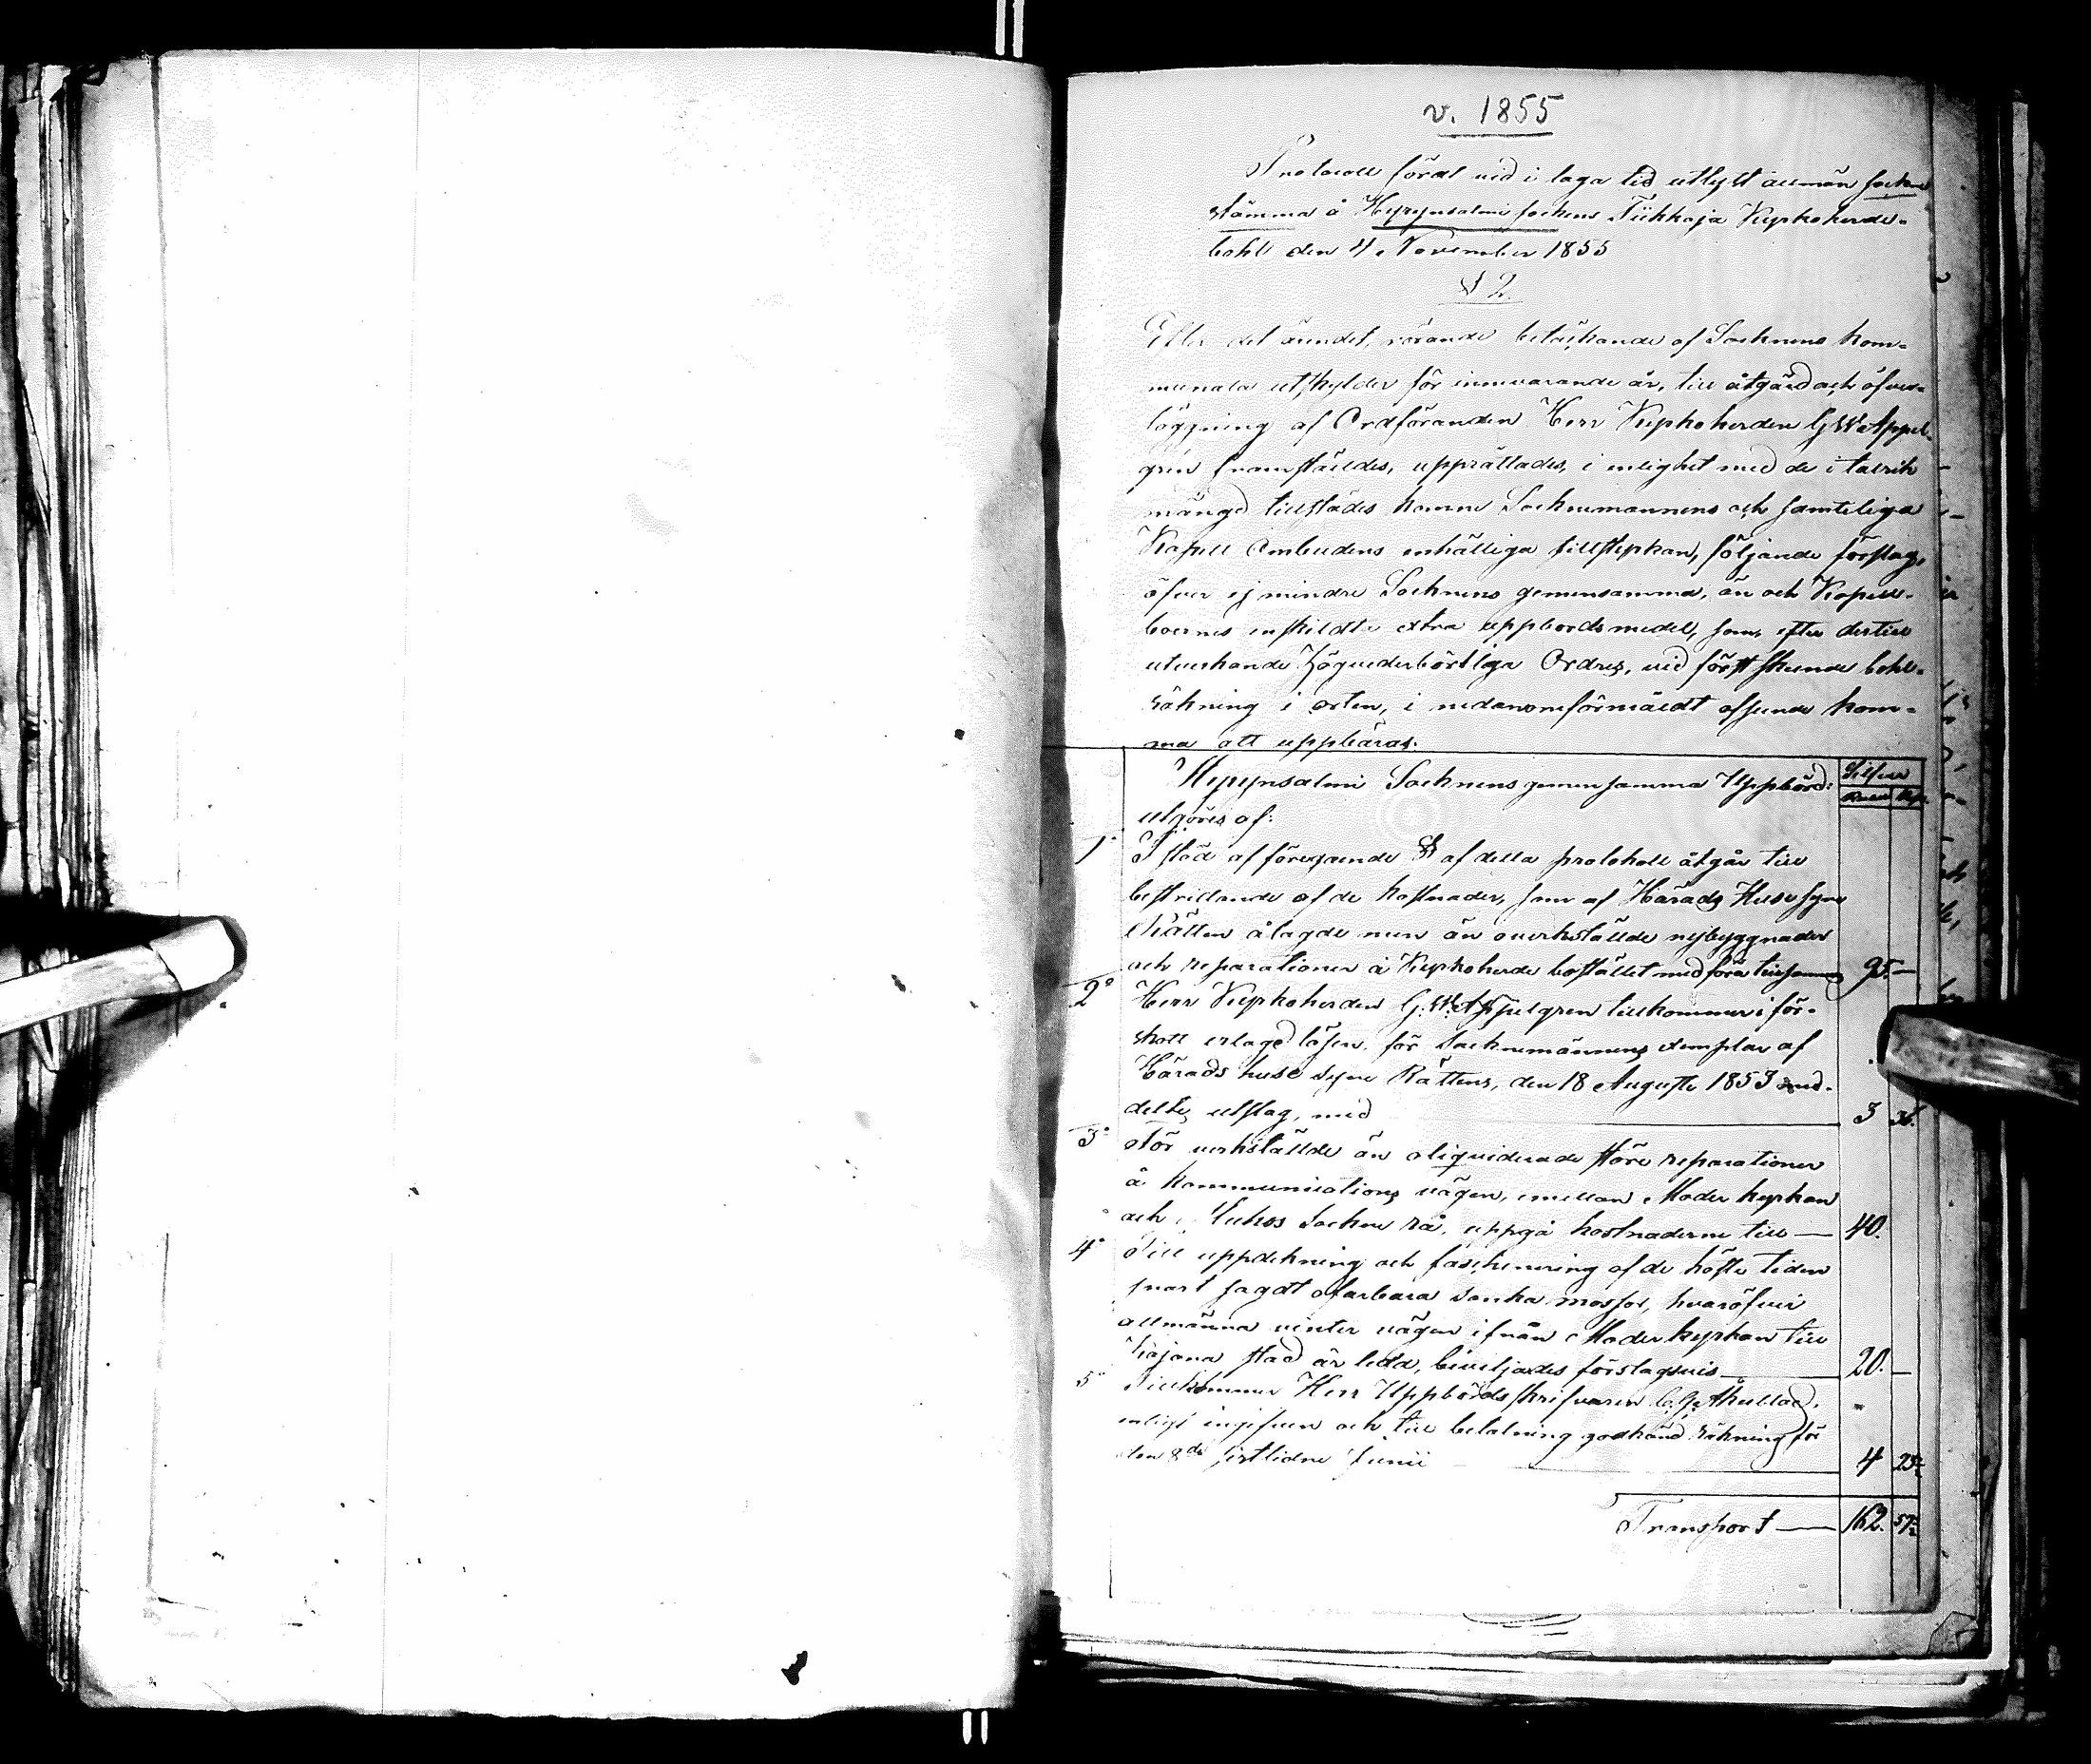 v. 1855
Protocoll fördt vid i laga tid utlyst allmän sockne
stämma å Hyrynsalmi sockens Tiikkaja Kyrkoherde-
bohl den 4 November 1855
§ 2.
Efter det ärendet, rörande betäckande af Socknens kom-
munala utskylder för innevarande år, till åtgärd och öfver-
läggning af Ordföranden Herr Kyrkoherden G W Appel-
grén framställdes, upprättades, i enlighet med de i talrik
mängd tillstädes komne Socknemännens och samteliga
Kapell Ombudens enhälliga tillstyrkan, följande förslag,
öfver ej mindre Socknens gemensamma, än och Kapell-
boernes enskildte extra uppbords medel, som, efter dertill
utverkande Högvederbörliga Ordres, vid först skeende behl-
räkning i orten, i nedanomförmäldt afseende kom-
ma att uppbäras.
Hyrynsalmi Socknens gemensamma Uppbörd: Silfver
utgöres af: Rubel Kop.
1° I stöd af föregående § af detta protokoll åtgår till
bestridande af de kostnader, som af Härads Huse syne
Rätten ålagde men än overkställde nybyggnader
och reparationer å Kyrkoherde bostället medföra tillsammans 95. —
2° Herr Kyrkoherden G. W. Appelgren tillkommer i för-
skott erlagd lösen för Socknemännens exemplar af
Härads huse syne Rättens, den 18 Augusti 1853 med-
delte utslag, med 3 34.
3° För verkställde än oliqviderade större reparationer
å kommunications vägen, emellan Moder kyrkan
och Puhos Socken rå, uppgå kostnaderne till — 40.
4° Till uppdikning och faschinering af de höste tiden
snart sagdt ofarbara sanka mossor, hvaröfver
allmänna vinter vägen ifrån Moderkyrkan till
Kajana stad är ledd, beviljades förslagsvis — 20. —
5° Tillkommer Herr Uppbörds skrifvaren
enligt ingifven och till betalning godkänd räkning för
den 8de sistlidne Junii 4 23½
Transport — 162. 57½